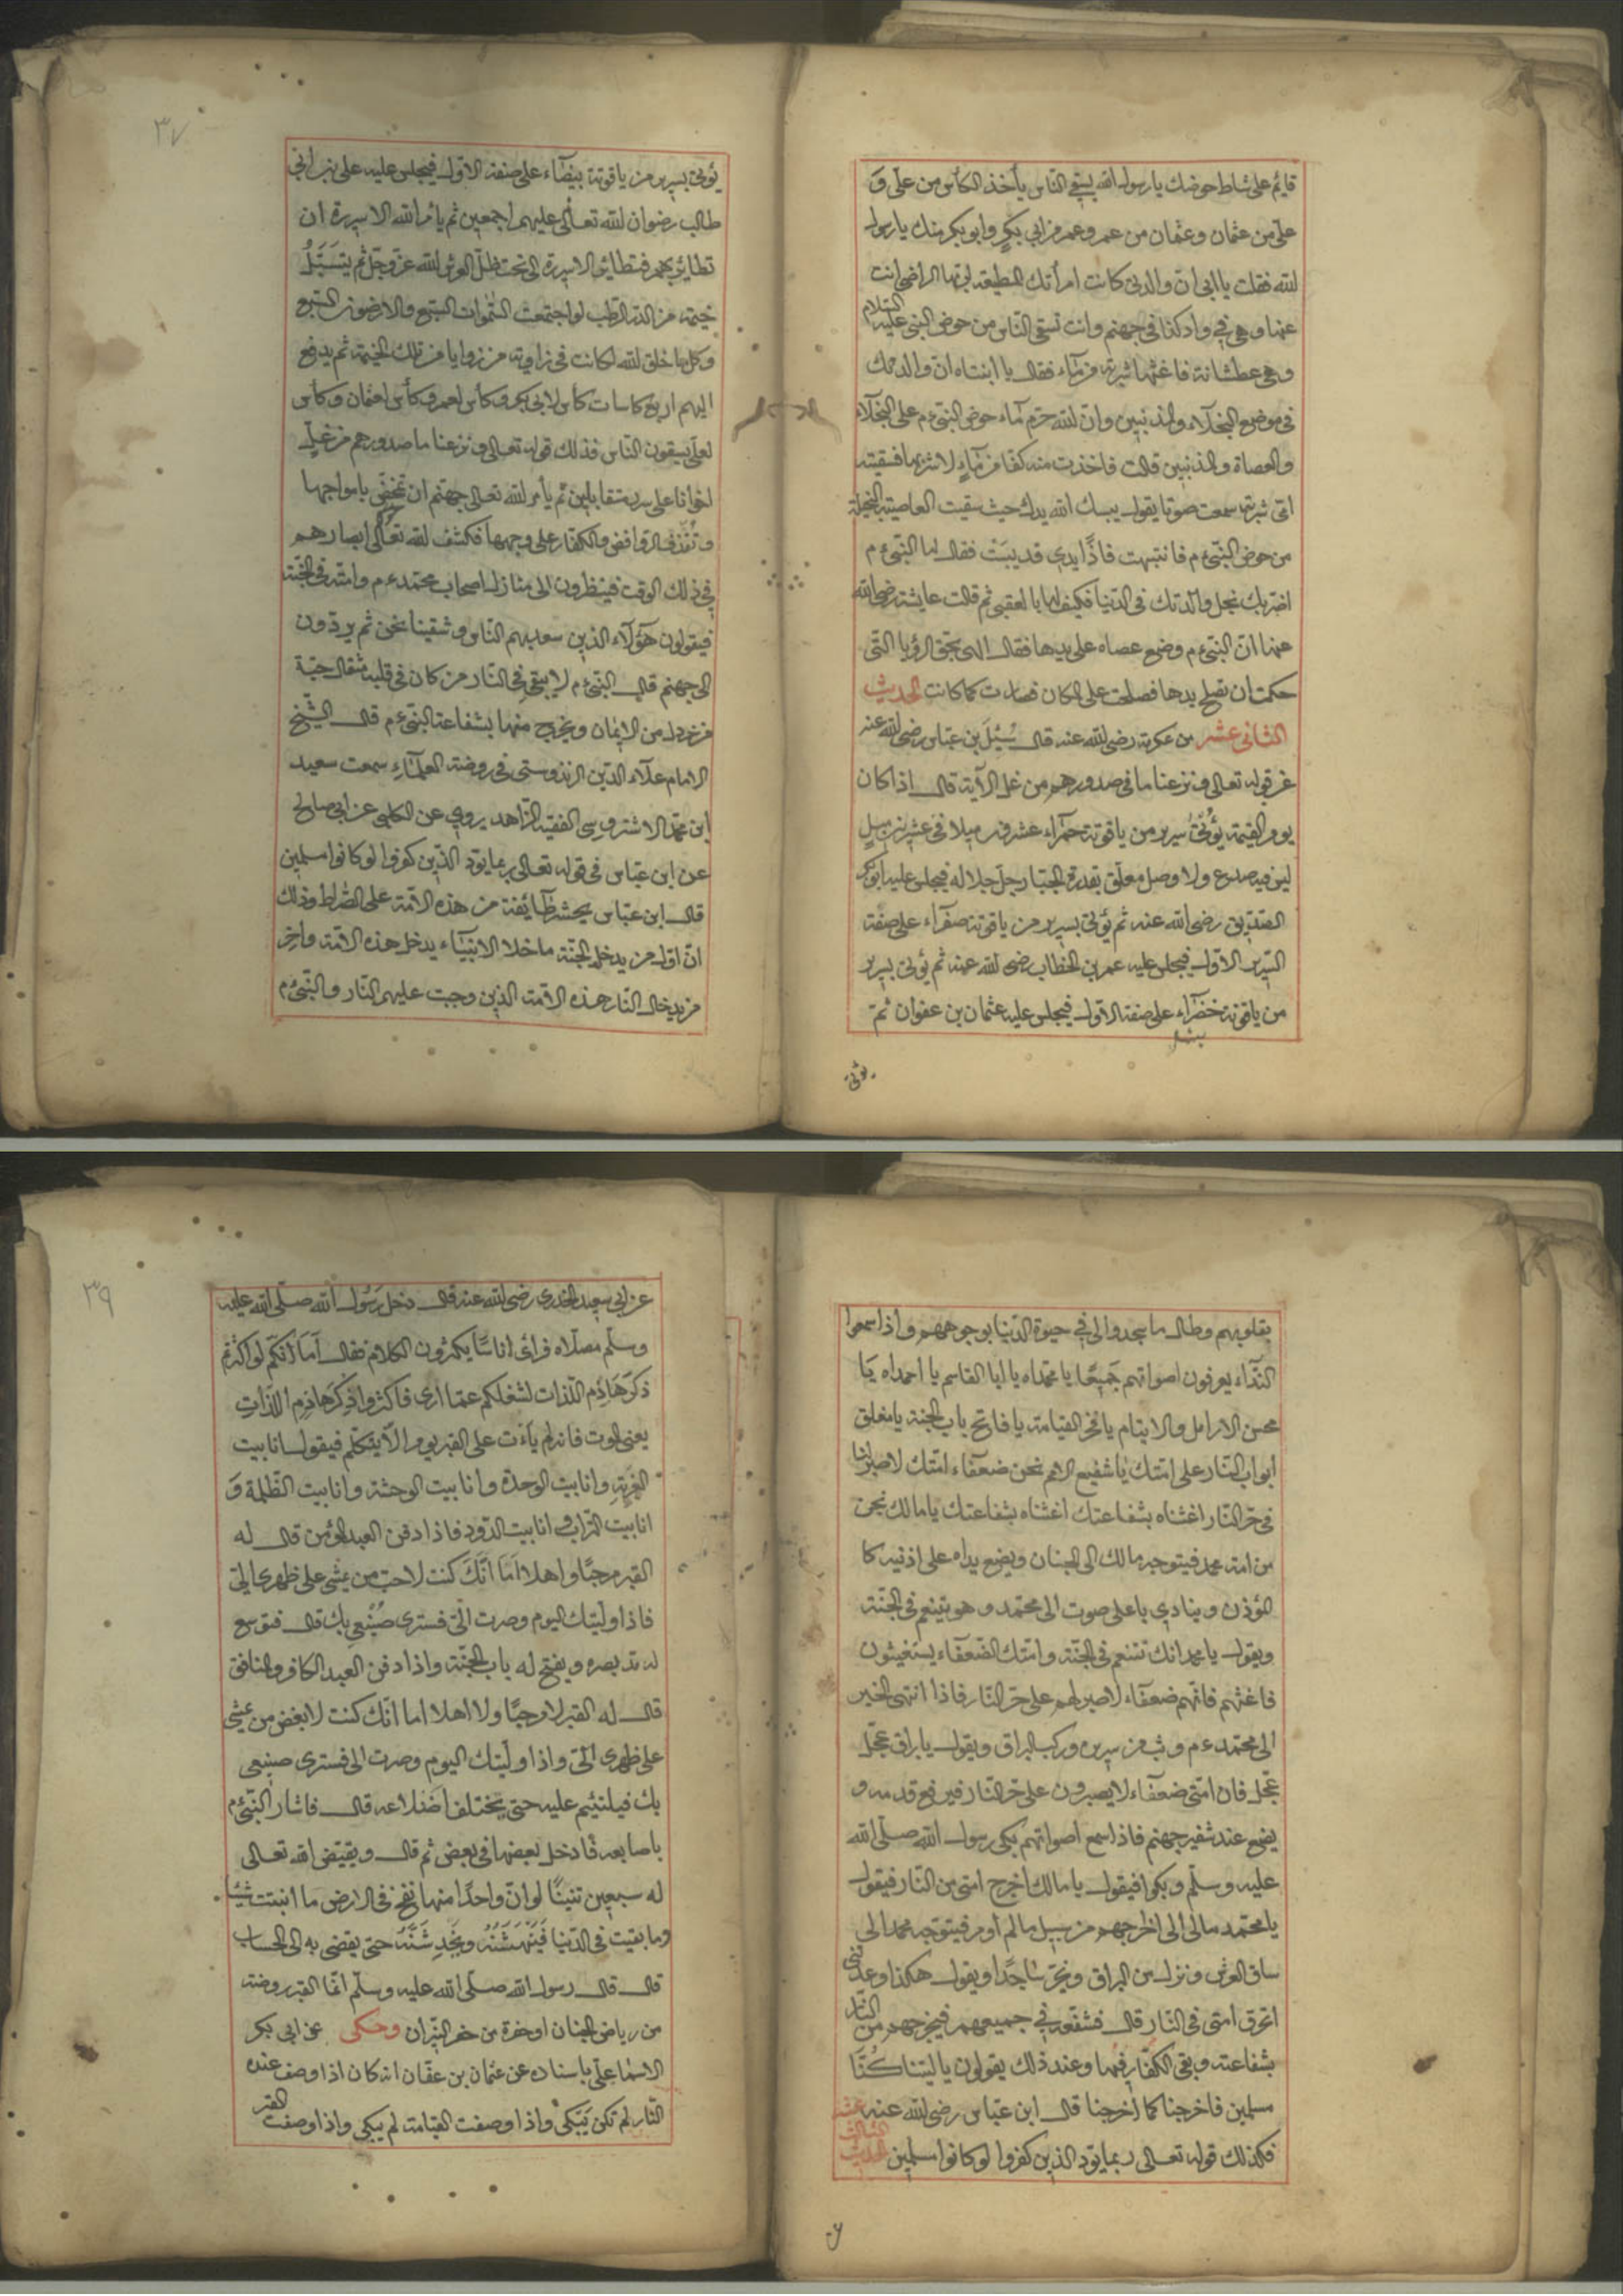 قايم على شاط حوضك يا رسول الله يسقي الناس يأخذ الكأس من على و
على من عثمان وعثمان من عمر وعمر من ابي بكر وابو بكر منك يا رسول
الله فقلت يا ابي ان والدتي كانت امرأتك المطيعة لربها الراضي انت
عنها وهي في واد كذا في جهنم وانت تسقى الناس من حوض النبي عليه السلام
وهي عطشانة فاغثها شربة من ماء فقال يا ابنتاه ان والدتك
في موضع البخلاء والمذنبين وان الله حرم ماء حوض النبي ءم على البخلاء
والعصاة والمذنبين قالت فاخذت منه كفا من ماء لاشربها فسقيته
امي شربتها سمعت صوتا يقول يبسك الله يدك حيث سقيت العاصية البخيلة
من حوض النبي ءم فانتبهت فاذا يدي قد يبست فقال لها النبي ءم
اضر بك بخل والدتك في الدنيا فكيف لها بالعقبى ثم قالت عايشة رضى الله
عنها ان النبي ءم وضع عصاه على يدها فقال الهى بحق الرؤيا التى
حكمت ان تصلح يدها فصلحت على المكان فصارت كما كانت الحديث
الثانى عشر من عكرمة رضى الله عنه قال سئل بن عباس رضى الله عنه
عن قوله تعالى ونزعنا ما فى صدورهم من غل الآية قال اذا كان
يوم القيمة يؤتى سرير من ياقوتة حمراء عشرون ميلا فى عشرين ميل
ليس فيه صدع ولا وصل معلق بقدرة الجبار جل جلاله فيجلس عليه ابو بكر
الصديق رضى الله عنه ثم يؤتى بسرير من ياقوتة صفراء على صفة
السرير الاول فيجلس عليه عمر بن الخطاب رضى الله عنه ثم يؤتى بسرير
من ياقوتة خضراء على صفة الاول فيجلس عليه عثمان بن عفوان ثم
يؤتى
٣٧
يؤتى بسرير من ياقوتة بيضاء على صفة الاول فيجلس عليه على بن ابي
طالب رضوان الله تعالى عليهم اجمعين ثم يأمر الله الاسرة ان
تطاير بهم فتطاير الاسرة الى تحت ظل العرش لله عز وجل ثم يتسبل
خيمة من الدر الرطب لو اجتمعت السموات السبع والارضون السبع
وكل ما خلق الله لكانت فى زاوية من زوايا من تلك الخيمة ثم يدفع
اليهم اربع كاسات كأس لابى بكر وكأس لعمر وكأس لعثمان وكأس
لعلي يسقون الناس فذلك قوله تعالى ونزعنا ما صدورهم من غل
اخوانا على سرر متقابلين ثم يأمر الله تعالى جهنم ان بامواجها
وتقذف الروافض والكفار على وجهها فكشف الله تعالى ابصارهم
فى ذلك الوقت فينظرون الى منازل اصحاب محمد ءم وامته فى الجنة
فيقولون هؤلاء الذين سعد بهم الناس وشقينا نحن ثم يردون
الى جهنم قال النبي ءم لا يبقى فى النار من كان فى قلبه مثقال حبة
من خردل من الايمان ويخرج منها بشفاعة النبي ءم قال الشيخ
الامام علاء الدين الزندوستى فى روضة العلماء سمعت سعيد
ابن محمد الاشتروسى الفقيه الزاهد يروى عن الكلبى عن ابى صالح
عن ابن عباس فى قوله تعالى ربما يود الذين كفروا لو كانوا مسلمين
قال ابن عباس يحشر طائفة من هذه الامة على الصراط وذلك
ان اول من يدخل الجنة ما خلا الانبياء يدخل هذه الامة واخر
من يدخل النار هذه الامة الذين وجبت عليهم النار والنبي ءم
بقلوبهم وطال ما سجدوا لى فى حيوة الدنيا بوجوههم واذا سمعوا
النداء يعرفون اصواتهم جميعا يا محمداه يا ابا القاسم يا احمداه يا
محسن الارامل والايتام يا فخر القيامة يا فاتح باب الجنة يا مغلق
ابواب النار على امتك يا شفيع الامم نحن ضعفاء امتك لا صبر لنا
فى حر النار اغثناه بشفاعتك اغثناه بشفاعتك يا مالك نحن
من امة محمد فيتوجه مالك الى الجنان ويضع يداه على اذنيه كا
المؤذن وينادى باعلى صوت الى محتمد وهو يتنعم فى الجنة
ويقول يا محمد انك تتنعم فى الجنة وامتك الضعفاء يستغيثون
فاغثهم فانهم ضعفاء لا صبر لهم على حر النار فاذا انتهى الخبر
الى محمد ءم وثب من سريره وركب البراق ويقول يا براق عجل
عجل فان امتى ضعفاء لا يصبرون على حر النار فيرفع قدمه و
يضع عند شفير جهنم فاذا سمع اصواتهم بكى رسول الله صلى الله
عليه وسلم وبكوا فيقول يا مالك اخرج امتى من النار فيقول
يا محمد مالى الى اخرجهم من سبيل ما لم اومر فيتوجه محمد الى
ساق العرش ونزل من البراق ويخر ساجدا ويقول هكذا وعدتنى
اتحرق امتى فى النار قال فشفعه فى جميعهم فيخرجهم من النار
بشفاعته وبقى الكفار فيها وعند ذلك يقولون يا ليتنا كنا
مسلمين فاخرجنا كما اخرجنا قال ابن عباس رضى الله عنه
فكذلك قوله تعالى ربما يود الذين كفروا لو كانوا مسلمين الحديث الثالث عشر
٣٩
عن ابى سعيد الخدرى رضى الله عنه قال دخل رسول الله صلى الله عليه
وسلم مصلاه فرأى اناسا يكثرون الكلام فقال اما انكم لو اكثرتم
ذكر هاذم اللذات لشغلكم عما ارى فاكثروا ذكر هاذم اللذات
يعنى الموت فانه لم يأت على القبر يوم الا يتكلم فيقول انا بيت
الغربة وانا بيت الوحدة وانا بيت الوحشة وانا بيت الظلمة و
انا بيت التراب وانا بيت الدود فاذا دفن العبد المؤمن قال له
القبر مرحبا واهلا اما انك كنت لاحب من يمشى على ظهرى الى
فاذا وليتك اليوم وصرت الى فسترى صنيعى بك قال فتوسع
له مد بصره ويفتح له باب الجنة واذا دفن العبد الكافر والمنافق
قال له القبر لا مرحبا ولا اهلا اما انك كنت لابغض من يمشى
على ظهرى الى واذا وليتك اليوم وصرت الى فسترى صنيعى
بك فيلتئم عليه حتى يختلف اضلاعه قال فاشار النبي ءم
باصابعه فادخل بعضها فى بعض ثم قال ويقيض الله تعالى
له سبعين تنينا لو ان واحدا منها نفخ فى الارض ما انبتت شيئا
وما بقيت فى الدنيا فينهشنه ويخدشنه حتى يقضى به الى الحساب
قال قال رسول الله صلى الله عليه وسلم انما القبر روضة
من رياض الجنان او حفرة من حفر النيران وحكى عن ابى بكر
الاسماعلى باسناده عن عثمان بن عفان انه كان اذا وصف عنده
النار لم تكن يبكى واذا وصفت القيامة لم يبكى واذا وصفت القبر